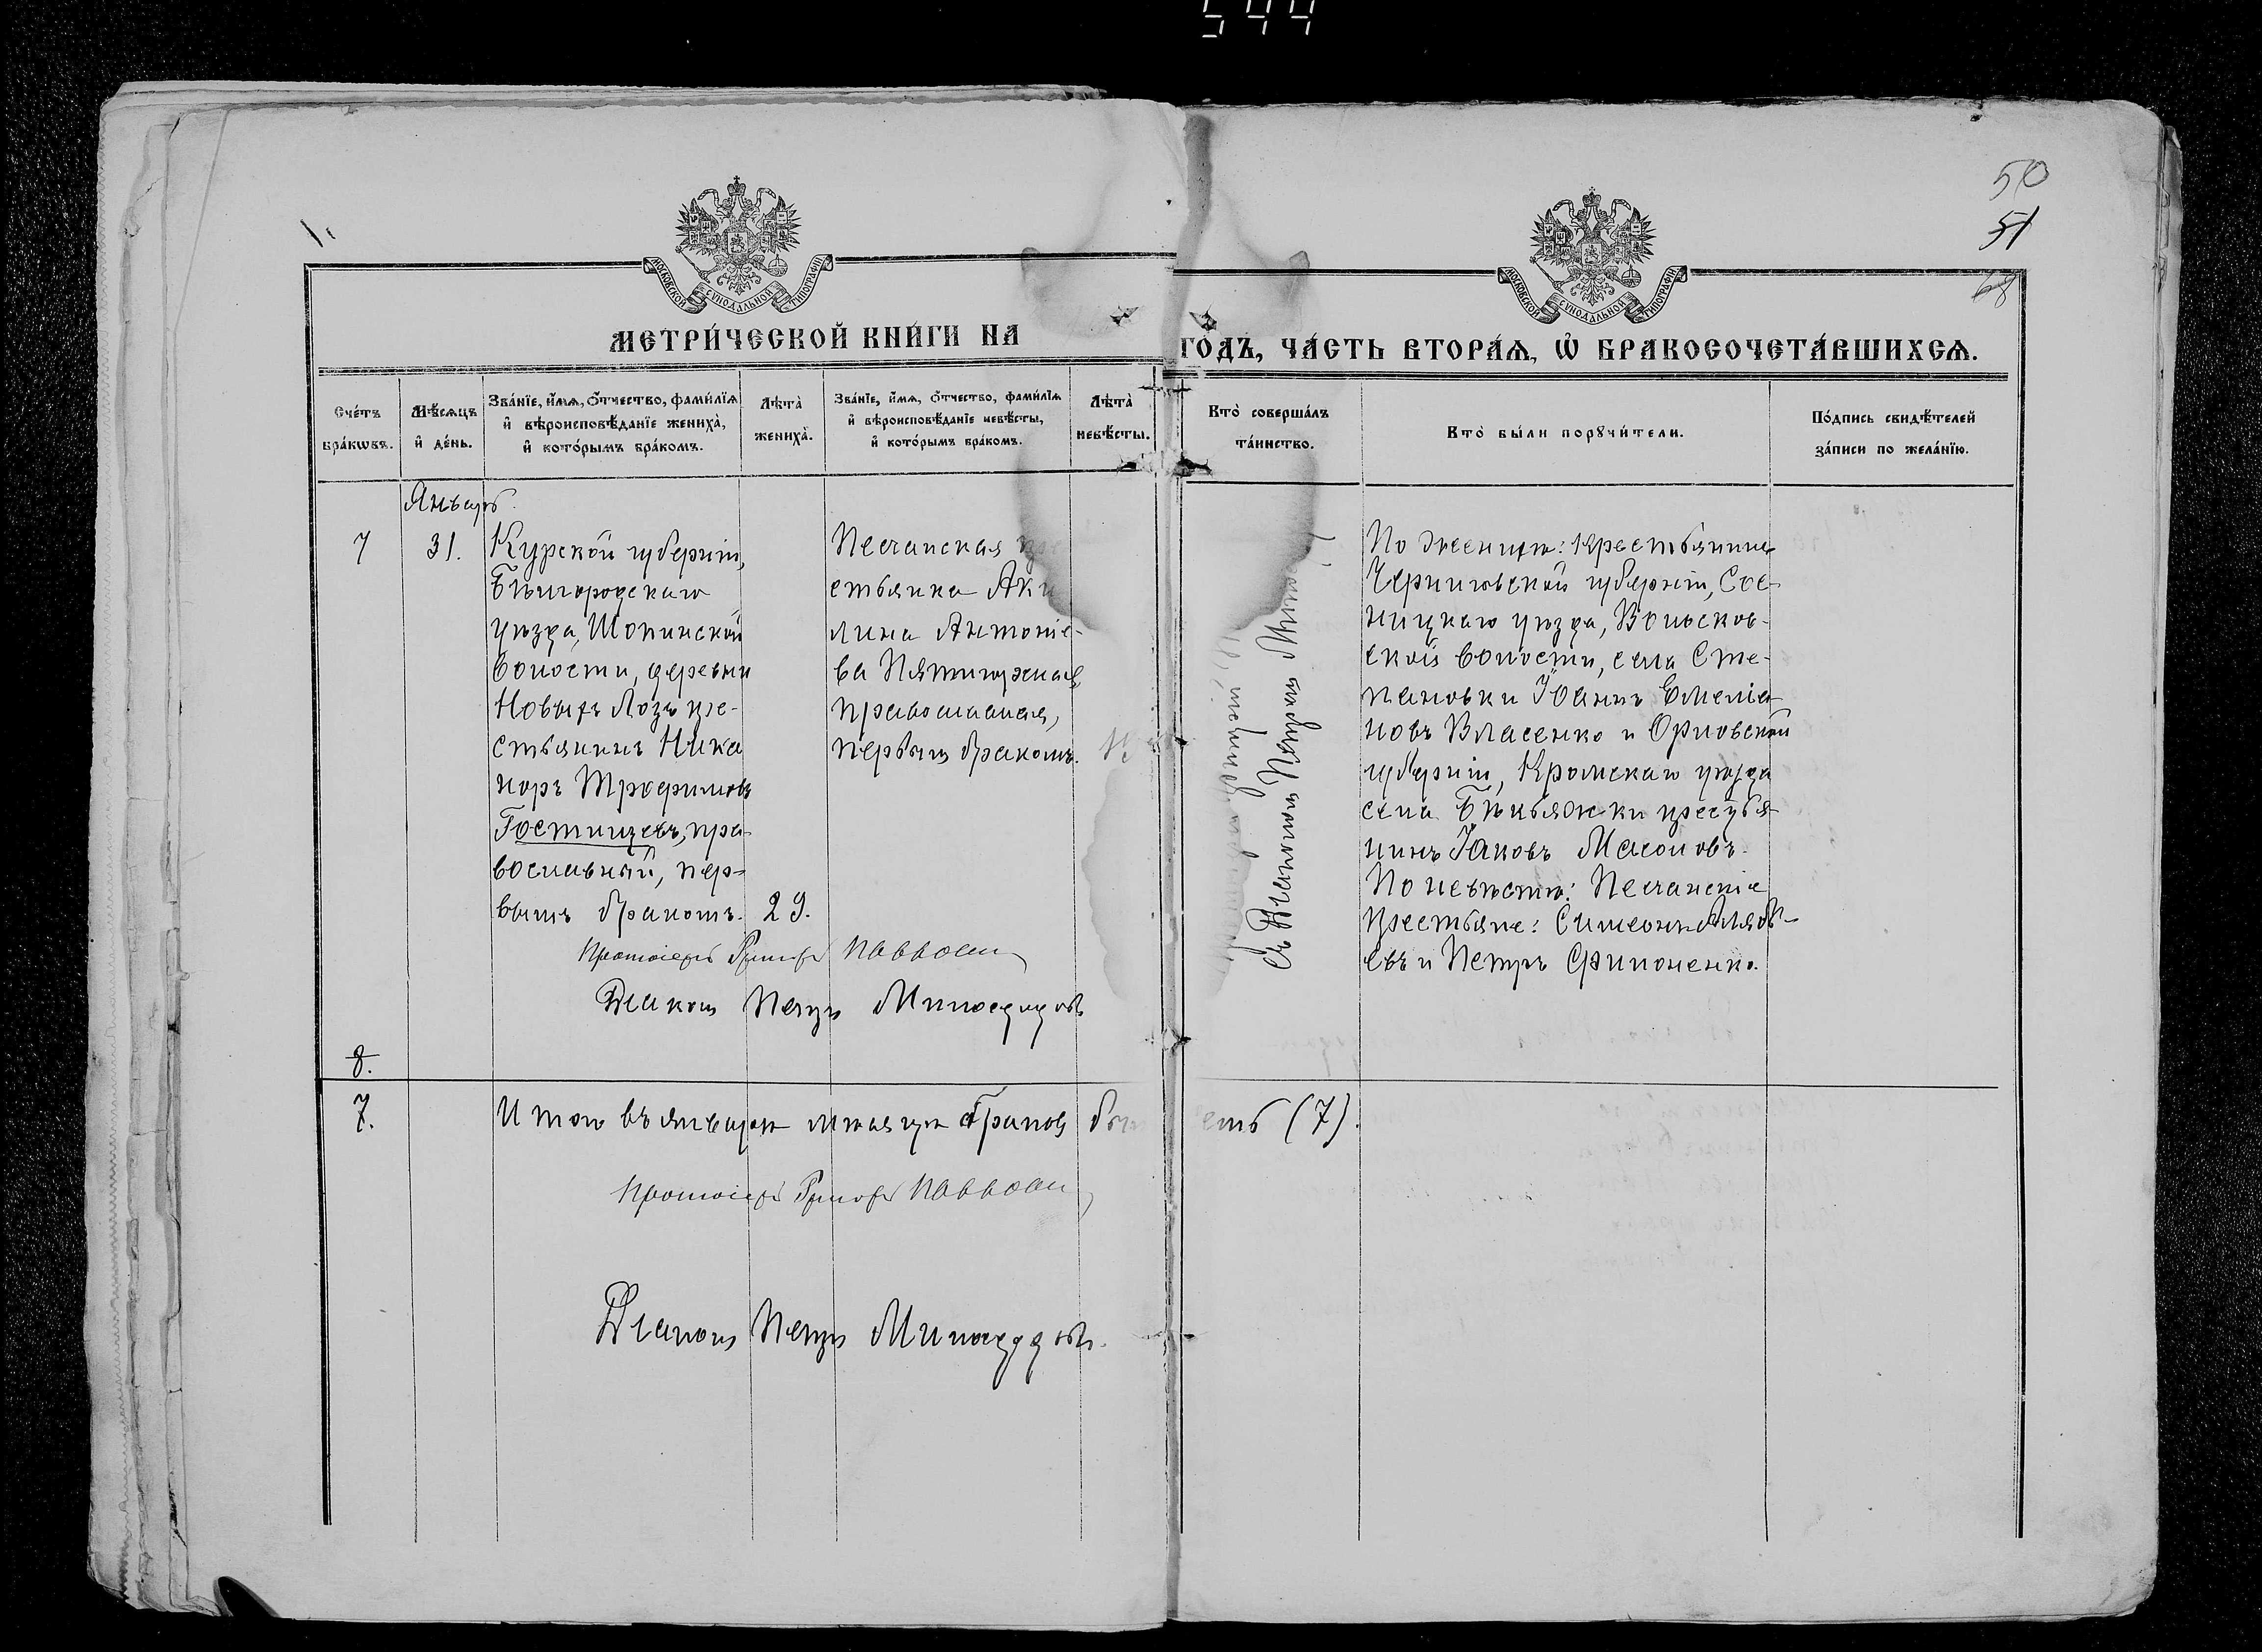 544
50
51
68
МОСКОВСКОЙ СѴНОДАЛЬНОЙ ТИПОГРАФІИ
МОСКОВСКОЙ СѴНОДАЛЬНОЙ ТИПОГРАФІИ
МЕТРИ́ЧЕСКОЙ КНИ́ГИ НА
ГО́ДЪ, ЧА́СТЬ ВТОРА́Ѧ, Ѽ БРАКОСОЧЕТА́ВШИХСѦ.
Сче́тъ
бра́кѡвъ.
Мѣ́сѧцъ
и҆ де́нь.
Зва́нїе, и҆́мѧ, ѻ҆́тчество, фами́лїѧ
и҆ вѣроисповѣ́данїе жениха̀,
и҆ кото́рымъ бра́комъ.
Лѣта̀
жениха̀.
Зва́нїе, и҆́мѧ, ѻ҆́тчество, фами́лїѧ
и҆ вѣроисповѣ́данїе невѣ́сты,
и҆ кото́рымъ бра́комъ.
Лѣта̀
невѣ́сты.
Кто̀ соверша́лъ
та́инство.
Кто̀ бы́ли порꙋчи́тели.
По́дпись свидѣ́телей
за́писи по жела́нїю.
Январь.
7
31.
Курской губерніи,
Бѣлгородскаго
уѣзда, Шопинской
волости, деревни
Новыхъ Лозъ кре-
стьянинъ Ника
норъ Трофимовъ
Гостищевъ, пра-
вославный, пер-
вымъ бракомъ.
29.
Песчанская
стьянка Аку
лина Антоніе-
ва Пятигорская,
православная,
первымъ бракомъ.
Діаконом Петром Мило
По женихѣ: крестьянине
Черниговской губерніи, Сос-
ницкаго уѣзда, Волосков-
ской волости, села Сте-
пановки Іоаннъ Емеліа-
новъ Власенко и Орловской
губерніи, Кромскаго уѣзда
села Бѣльяжки крестья-
нинъ Іаковъ Масоловъ.
По невѣстѣ: Песчанскіе
крестьяне: Симеонъ
евъ и Петръ Филоненко.
Протоіерей Григорій
Діаконъ Петръ Милосердовъ
8.
7.
Итого въ январѣ мѣсяцѣ браков
емь (7).
Протоіерей Григорій
Діаконъ Петръ Милосердовъ.